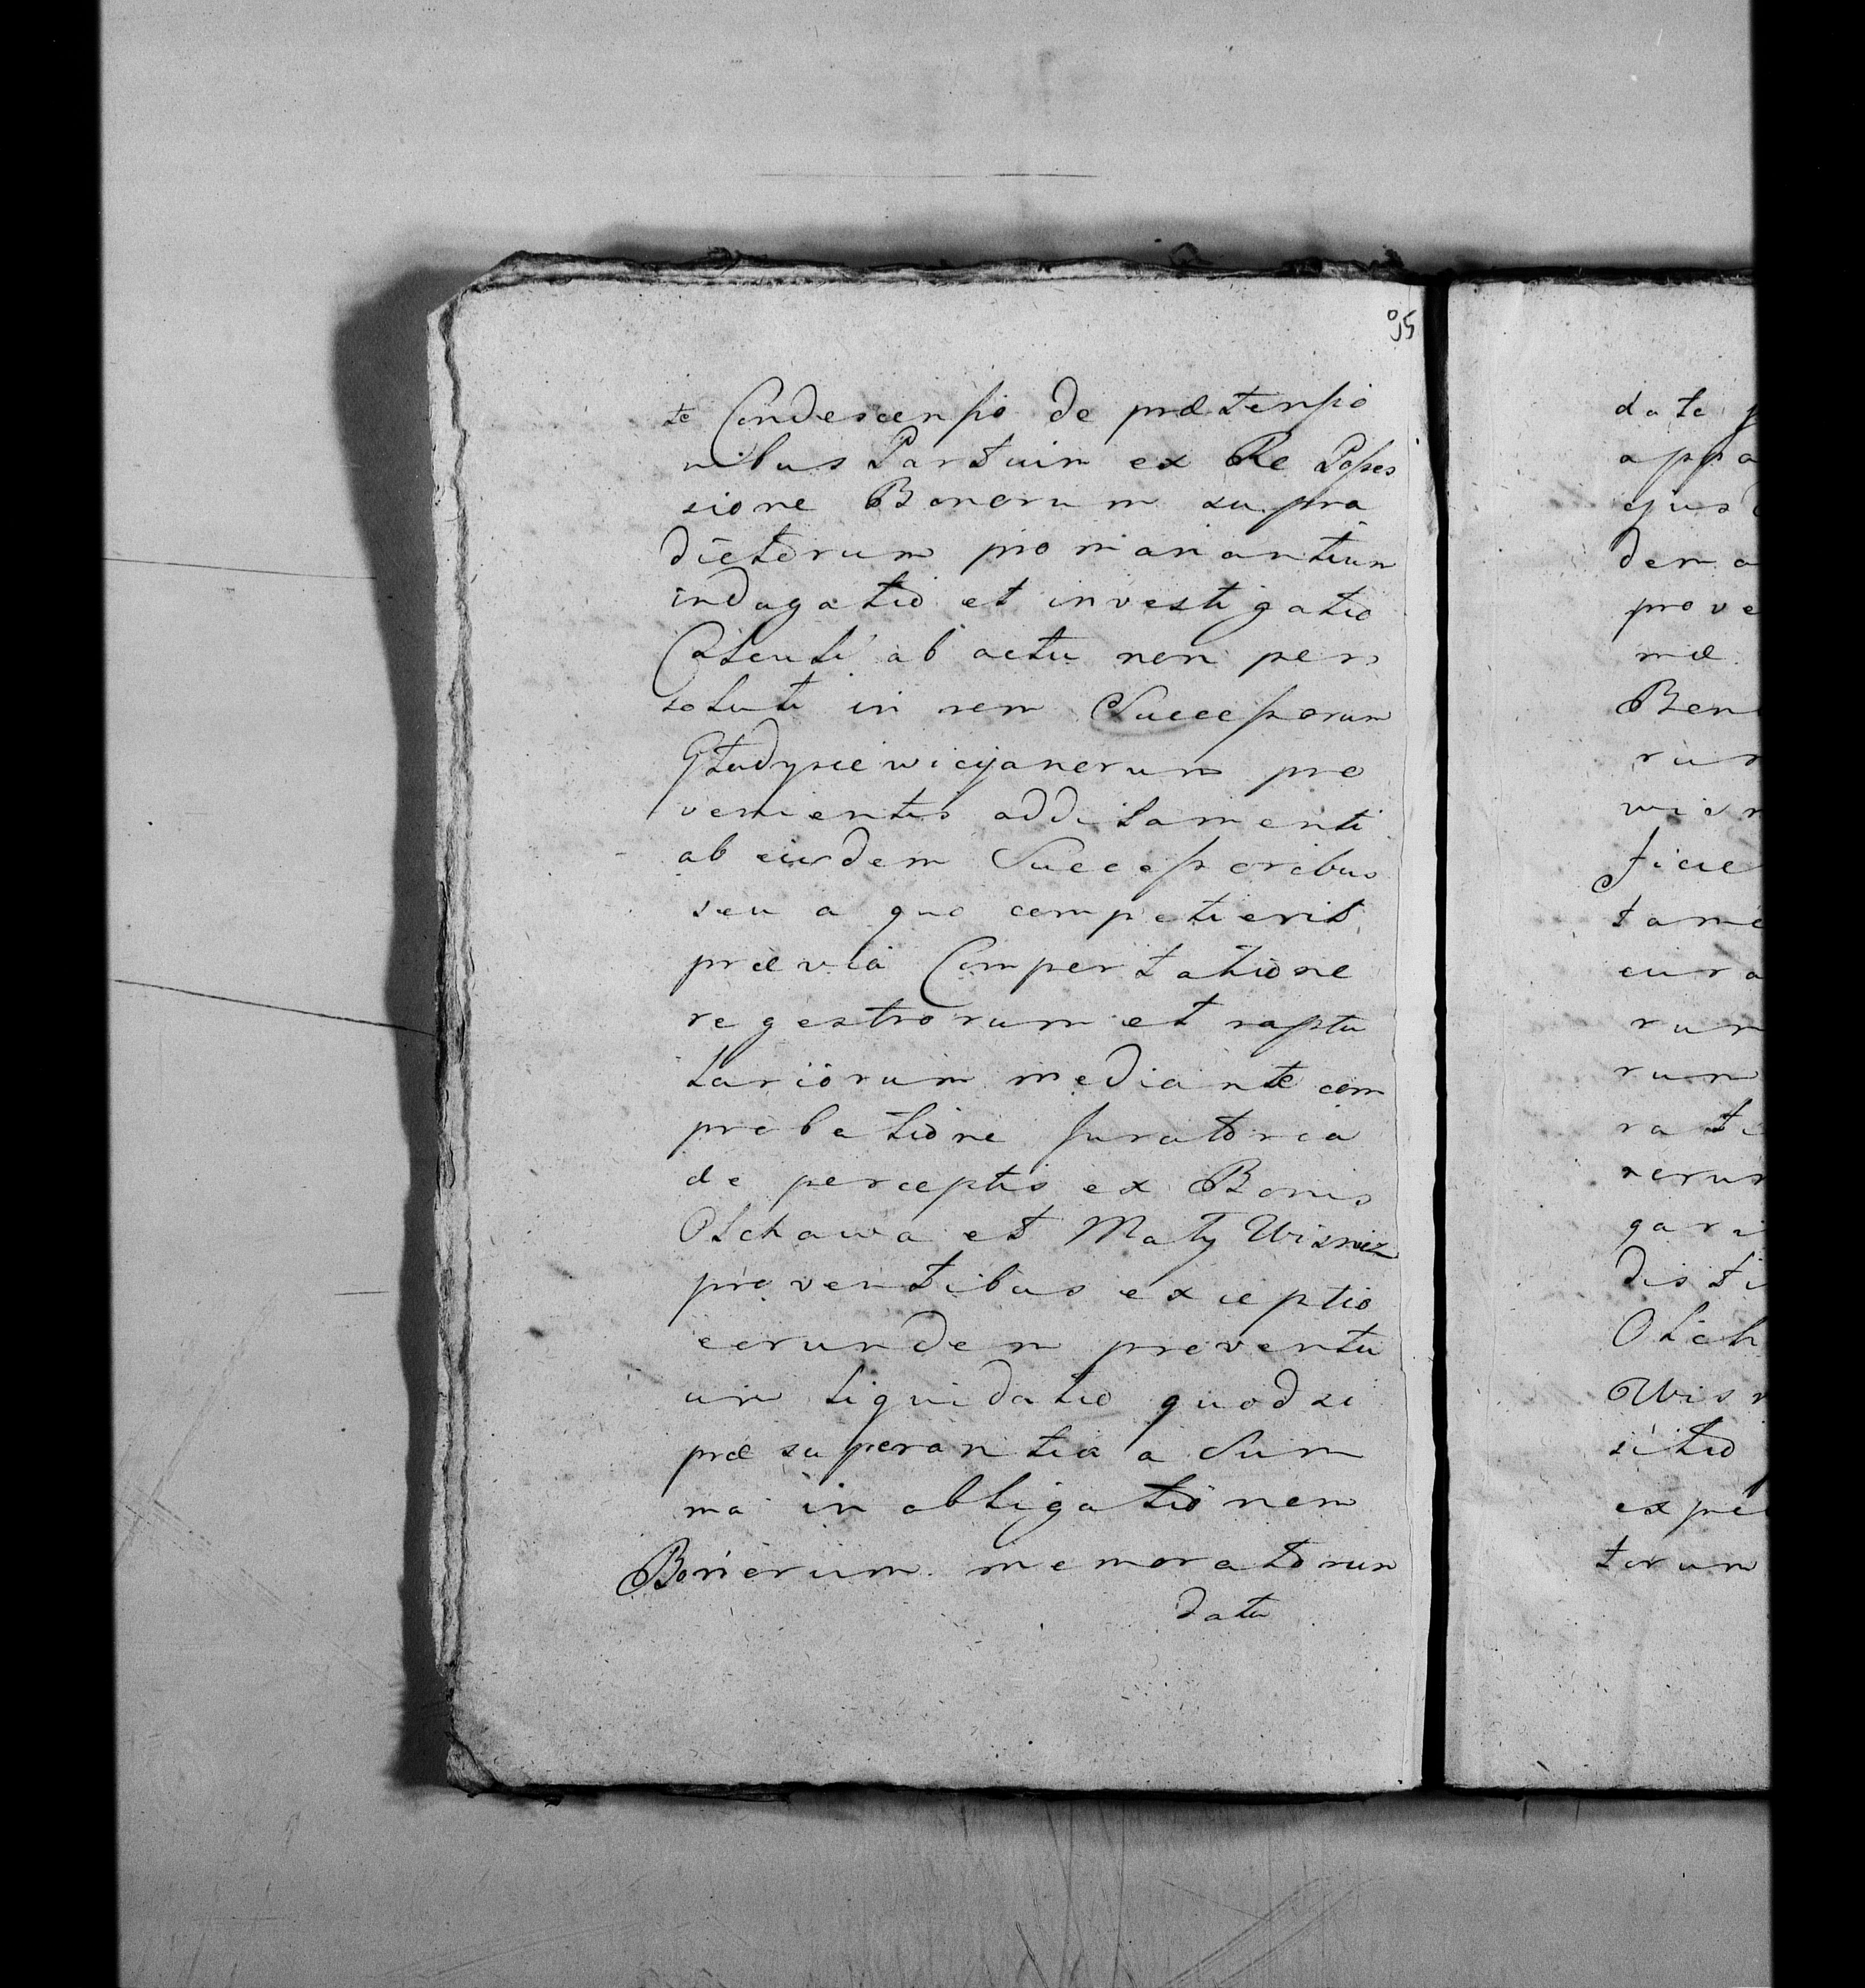 95
te Condescensio de prætensio
nibus Partium ex Re Posses
sione Bonorum supra
dictorum promanantium
indagatio et investigatio
Calculi ab actu non per
soluti in rem Successorum
Gładysiewicyanorum pro
venientis additamenti
ab eisdem Successoribus
seu a quo competierit
prævia Comportatione
regestrorum et raptu
lariorum mediante com
probatione juratoria
de perceptis ex Bonis
Olchawa et Mały Wisnicz
proventibus exceptio
eorundem proventu
um liquidatio quod si
præ superantia a Sum
ma in obligationem
Bonorum memoratorum
datu
data
appa
ejusd
dem a
prove
mæ
Bon
rur
wicn
ficie
tame
cura
rum
rum
rati
rerur
gari
disti
Olch
Wisn
sitio
expe
torum